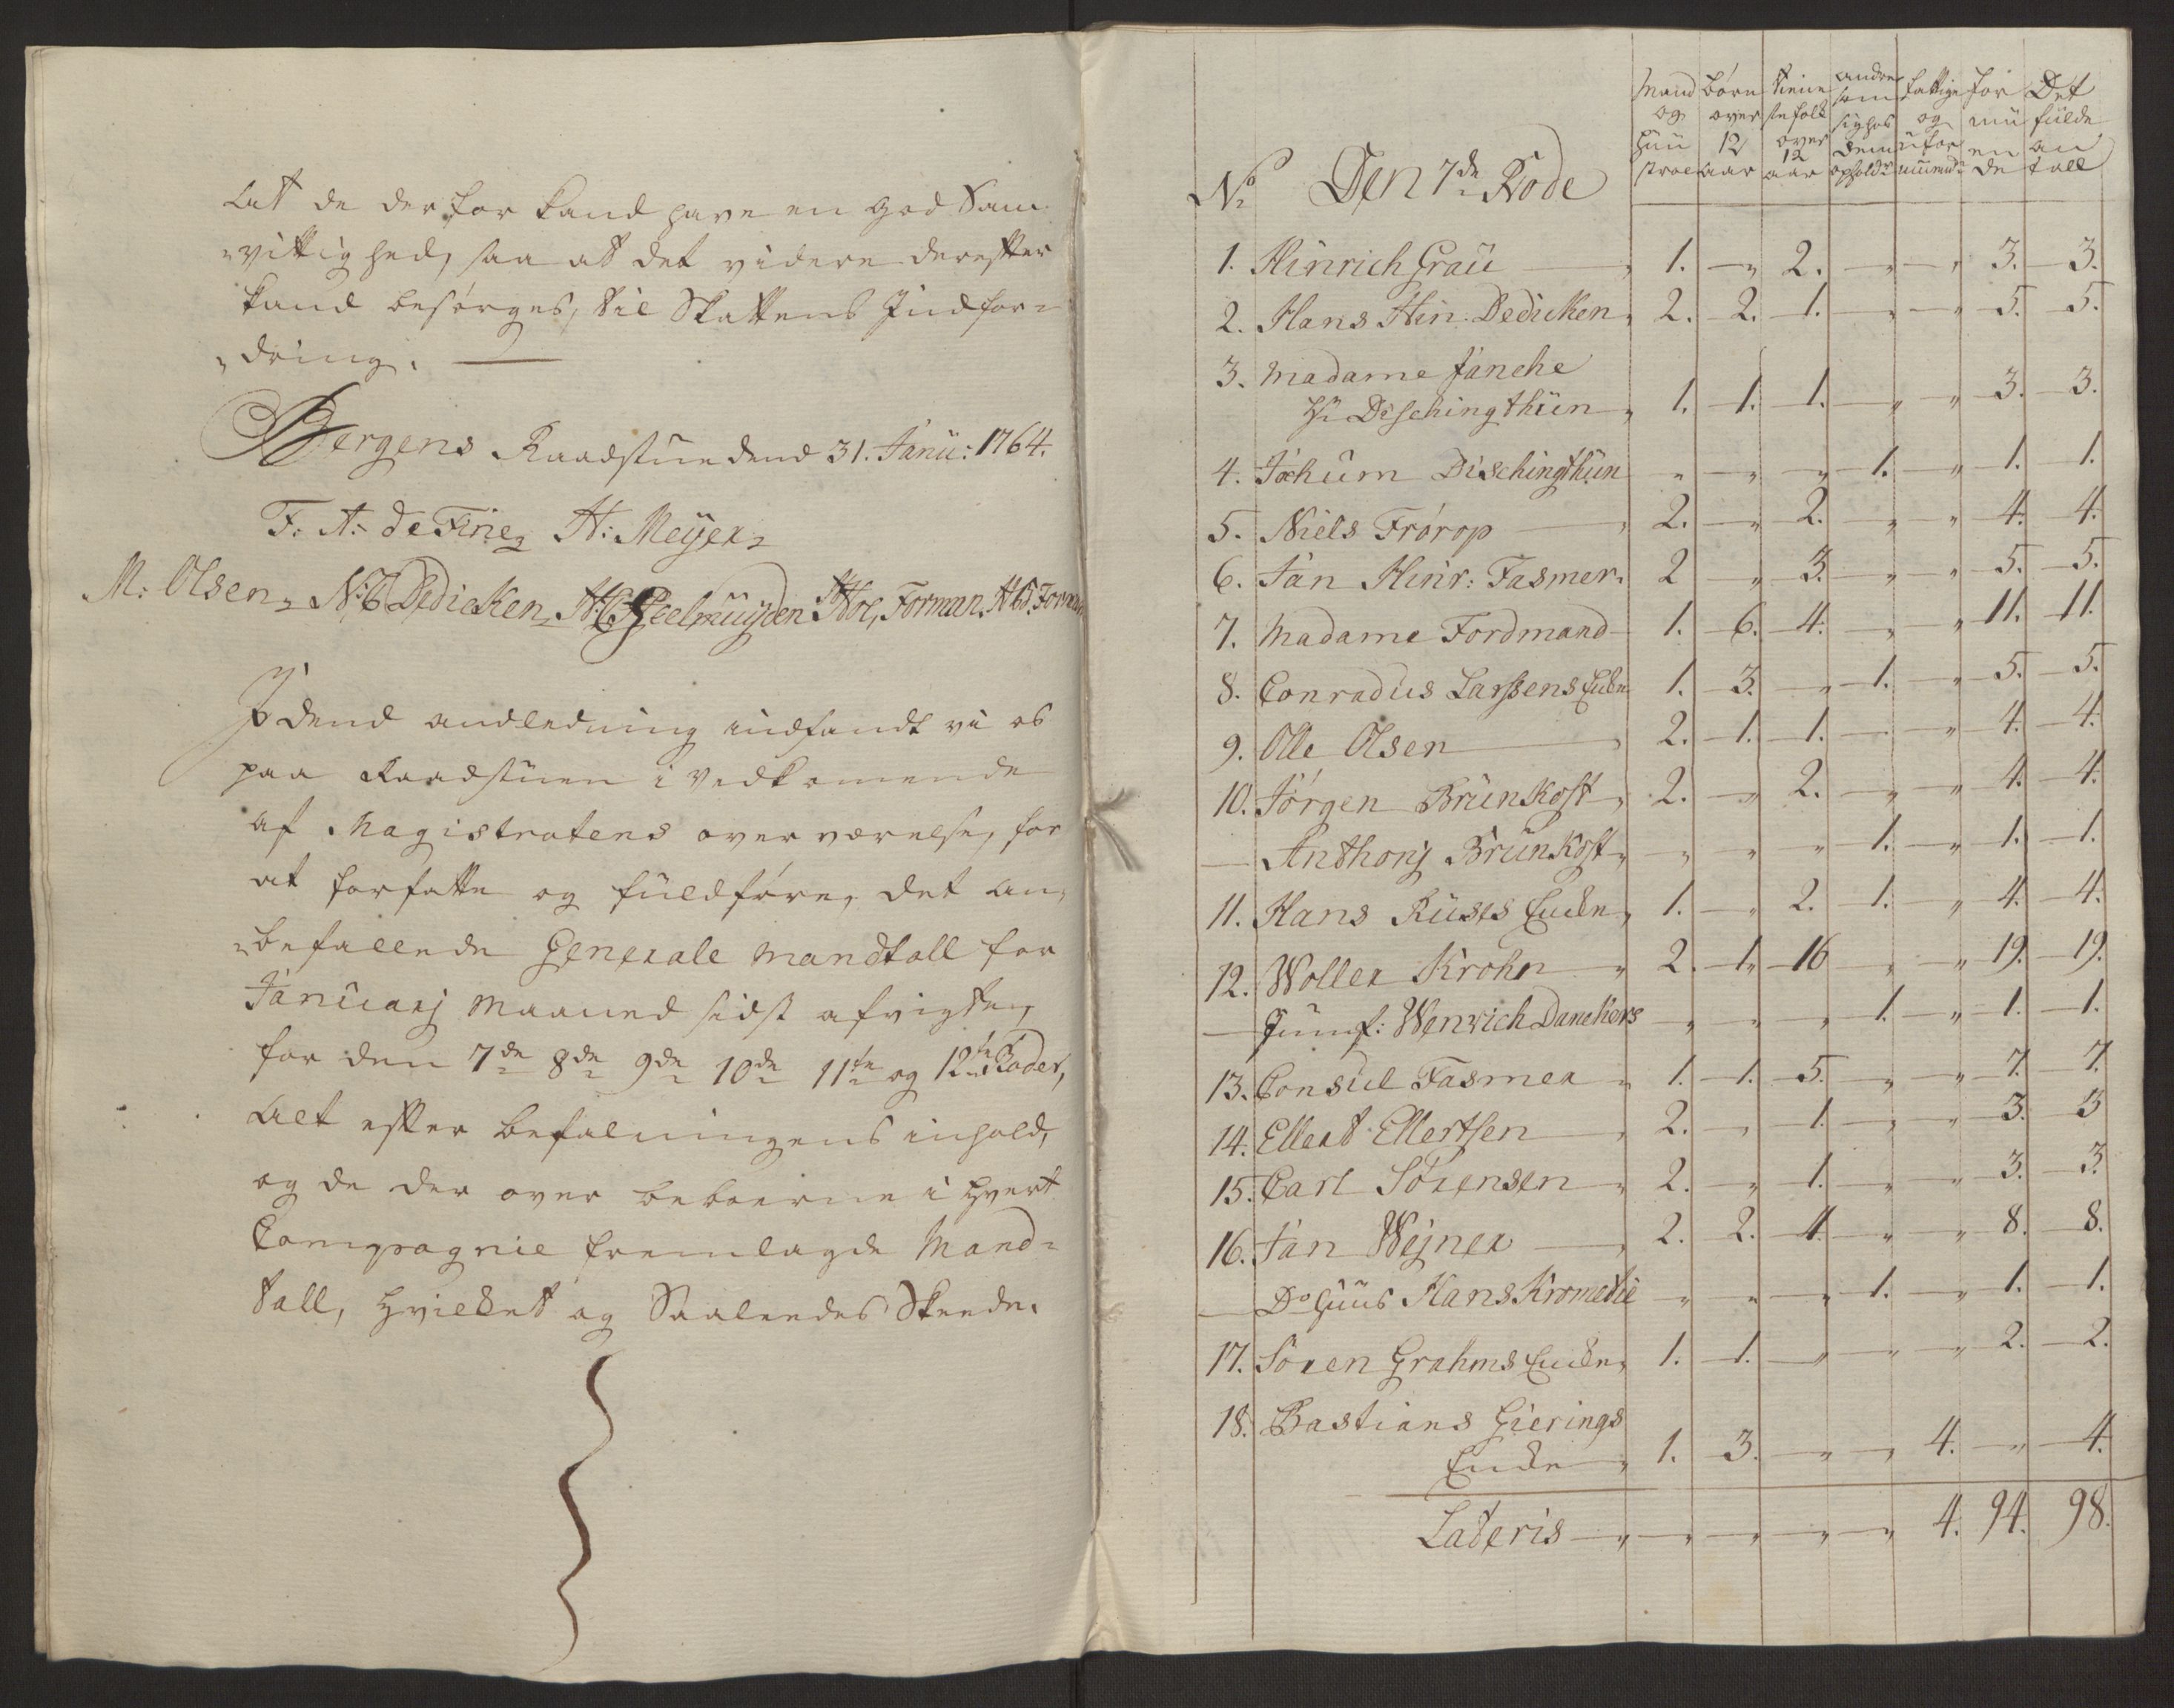 at de derfor kand have en god Sam-
vittighed, saa at det videre derefter
kand besørges, til Skattens Indfor-
dring.
Bergens Raadstue dend 31. Janü: 1764.
F: A: de Fine, H: Meÿer,
M: Olsen, N: B Dedicken, H: C Geelmuÿden Forman.
I dend andledning indfandt vi os
paa Raadstüen i vedkomende
af Magistratens overværelse, for
at forfatte og füldføre, det an-
befallende Generale Mandtall for
Januarj Maaned sidst afvigte,
for den 7de 8de 9de 10de 11te og 12te Roder,
alt efter befalningens inhold,
og de der over beboerne i hvert
Compagnie fremlagde Mand-
tall, hvilket og Saaledes Skeede.
No Den 7de Rode
Mand og Hüüstroe
børn over 12 aar
tienestefolk over 12 aar
andre som sig hos dem opholdr
fattige og uformuende
formüende
Det fülde antall
1. Hinrich Graü 1. " 2. " " 3. 3.
2. Hans Hin: Dedicken 2. 2. 1. " " 5. 5.
3. Madame Janche
Sl: Dischingthün 1. 1. 1. " " 3. 3.
4. Jochum Dischingthün " " " 1. " 1. 1.
5. Niels Frørop 2. " 2. " " 4. 4.
6. Jan Hinr: Fasmer 2 " 3. " " 5. 5.
7. Madame Fordmand 1. 6. 4. " " 11. 11.
8. Conradus Larssens Enke 1. 3. " 1. " 5. 5.
9. Olle Olsen 2. 1. 1. " " 4. 4.
10. Jørgen Brünkost 2. " 2. " " 4. 4.
— Anthonj Brünkost " " " 1. " 1. 1.
11. Hans Rüses Encke 1. " 2. 1. " 4. 4.
12. Woller Krohn 2. 1. 16 " " 19. 19.
— Jumf: Wenrich Danckers " " " 1. " 1. 1.
13. Consül Fasmer 1. 1. 5. " " 7. 7.
14. Ellert Ellertsen 2. " 1. " " 3. 3
15. Carl Sörensen 2. " 1. " " 3. 3.
16. Jan Wejner 2. 2. 4. " " 8. 8.
— Do hüüs Hans Krometie " " " 1. " 1. 1.
17. Sören Grahms Encke 1. 1. " " " 2. 2.
18. Bastians Gierings
Encke 1. 3. " " 4. " 4.
Lateris " " " " 4. 94. 98.